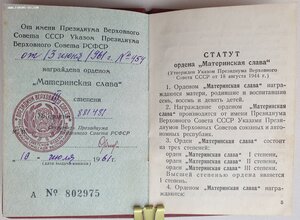 От имени Президиума Верховного
Совета СССР Указом Президиума
Верховного Совета РСФСР
от 13 июня 1961 г. № 454
награждена орденом
„Материнская слава"
степени
№ 881481
Президиума
Верховного Совета РСФСР
10 июля 1961 г.
А № 802975
СТАТУТ
ордена „Материнская слава"
(Утвержден Указом Президиума Верховного
Совета СССР от 18 августа 1944 г.)
1. Орденом „Материнская слава"
награждаются матери, родившие и воспитавшие
семь, восемь и девять детей.
2. Награждение орденом „Материнская слава"
производится от имени Президиума
Верховного Совета СССР указами Президиумов
Верховных Советов союзных и автономных
республик.
3. Орден „Материнская слава" состоит
из трех степеней:
Орден „Материнская слава" I степени,
орден „Материнская слава" II степени,
орден „Материнская слава" III степени.
Высшей степенью ордена является
I степень.
4. Награждение орденом „Материнская
3